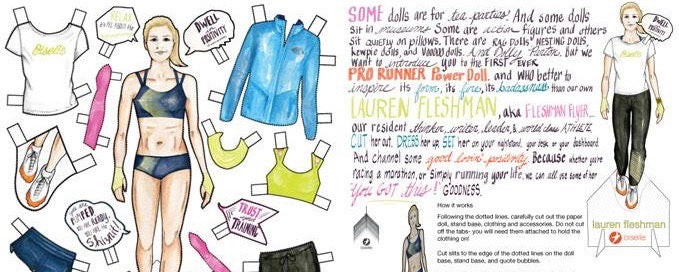 RELAX
DWELL
POSITIVITY
Oiselle
you are
PUMPED
to be READY.
TRUST
TRAINING
SOME dolls are for tea parties. And some dolls
sit in museums. Some are action figures and others
sit quietly on pillows. There are RAG DOLLS, NESTING DOLLS,
kewpie dolls, and VOODOO DOLLS. And Dolly Parton. but we
want to introduce you to the FIRST EVER
PRO RUNNER Power Doll. and WHO better to
inspire its form, its fire, its badassness than our own
LAUREN FLESHMAN, aka FLESHMAN FLYER...
our resident thinker, writer, leader, & world class ATHLETE
CUT her out. DRESS her up. SET her on your nightstand, your desk, or your dashboard.
And channel some good lovin' positivity. Because whether you're
racing a marathon, or simply running your life, we can all use some of her
"YOU GOT this!" GOODNESS.
DWELL
POSITIVITY
Oiselle
lauren fleshman
oiselle
How it works
Following the dotted lines, carefully cut out the paper
doll, stand base, clothing and accessories. Do not cut
off the tabs- you will need them attached to hold the
clothing on!
Cut slits to the edge of the dotted lines on the doll
base, stand base, and quote bubbles.